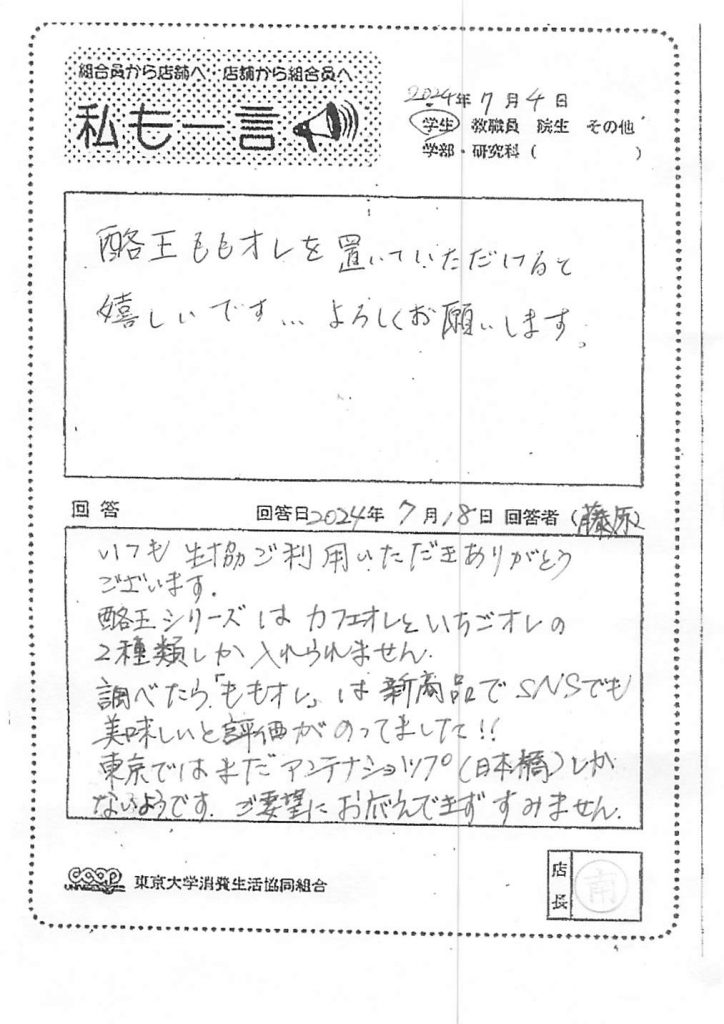 組合員から店舗へ 店舗から組合員へ
私も一言
2024年7月4日
学生 教職員 院生 その他
学部・研究科( )
酪王ももオレを置いていただけると
嬉しいです... よろしくお願いします。
回答 回答日2024年7月18日 回答者(藤原)
いつも生協ご利用いただきありがとう
ございます.
酪王シリーズはカフェオレといちごオレの
2種類しか入れられません.
調べたら「ももオレ」は新商品でSNSでも
美味しいと評価がのってました!!
東京ではまだアンテナショップ(日本橋)しか
ないようです. ご要望にお応えできずすみません.
coop 東京大学消費生活協同組合
店長 南